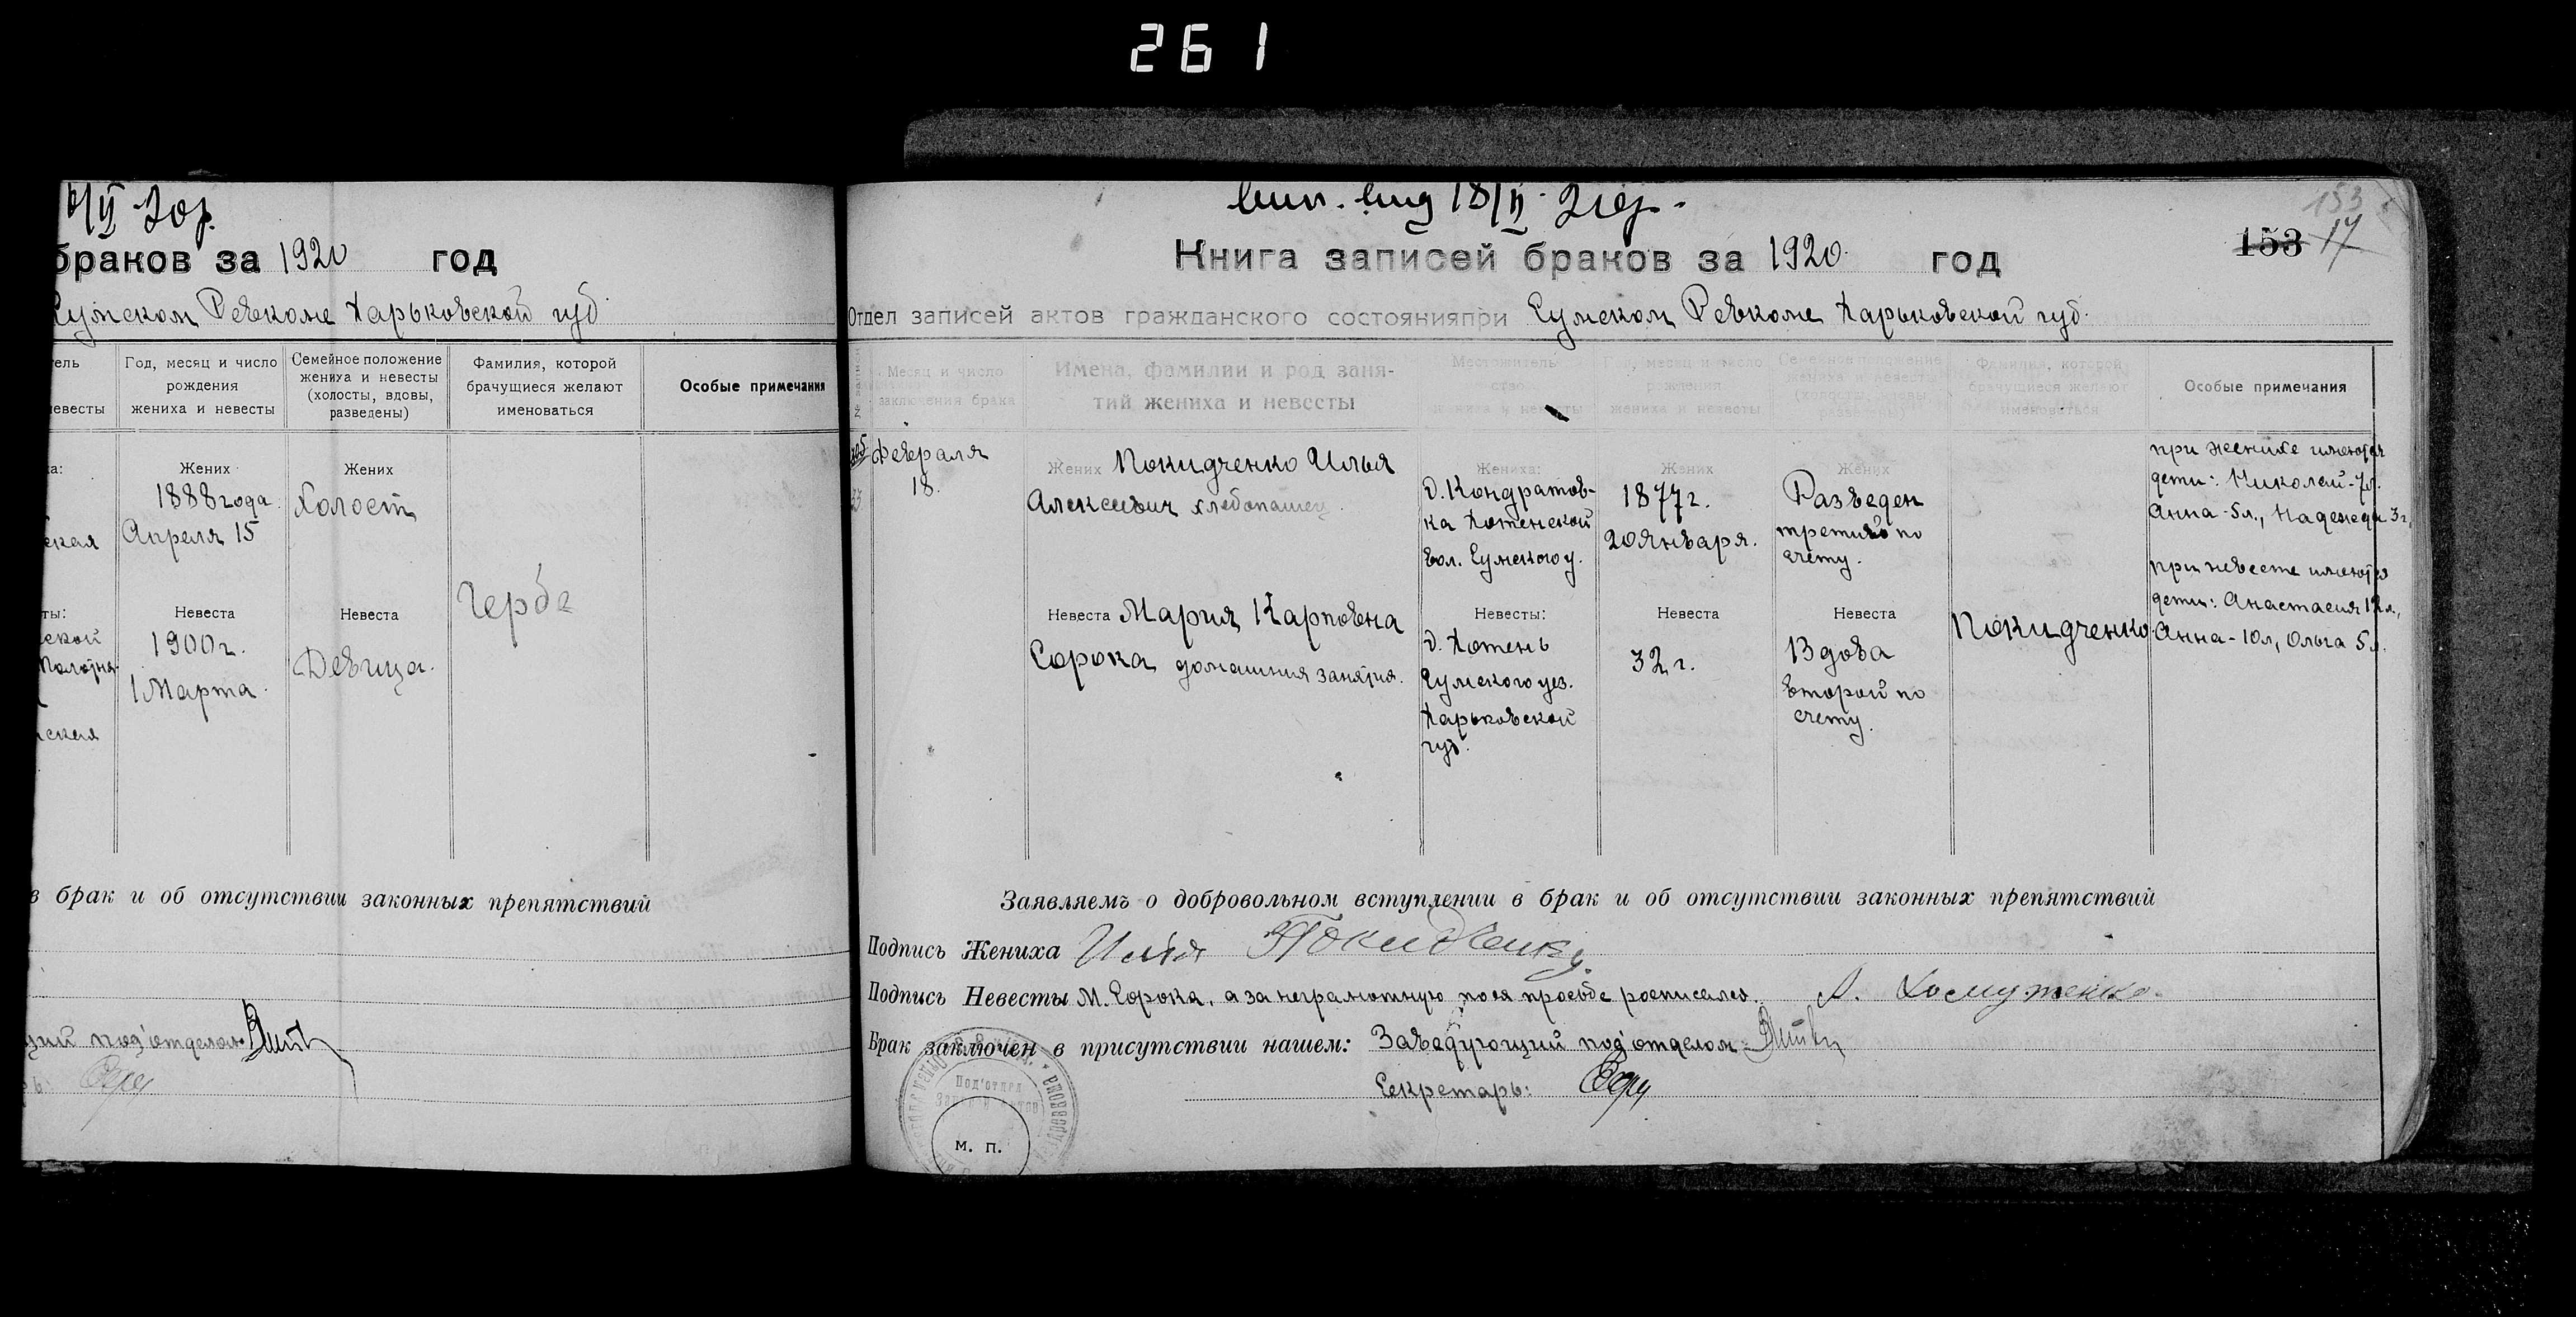 261
браков за 1920 год
Сумском Ревкоме Харьковской губ.
Год, месяц и число рождения жениха и невесты
Семейное положение жениха и невесты (холосты, вдовы, разведены)
Фамилия, которой брачущиеся желают именоваться
Особые примечания
Жених
1888 года
Апреля 15
Жених
Холост
Невеста
1900 г.
1 Марта.
Невеста
Девица.
Герба
в брак и об отсутствии законных препятствий
под'отделом
вып. вид 18/II 21 г.
153
153 17
Книга записей браков за 1920. год
Отдел записей актов гражданского состояния при Сумском Ревкоме Харьковской губ.
Месяц и число заключения брака
Имена, фамилии и род занятий жениха и невесты
Местожительство жениха и невесты
Год, месяц и число рождения жениха и невесты
Семейное положение жениха и невесты (холосты, вдовы, разведены)
Фамилия, которой брачущиеся желают именоваться
Особые примечания
Февраля
18.
Жених Покидченко Илья
Алексеевич хлебопашец
Жениха:
д. Кондратов-
ка Хотенской
вол. Сумского у.
Жених
1877 г.
20 Января.
Жених
Разведен
третий по
счету.
при женихе имеются
дети: Николай - 7 л.
Анна - 5 л., Надежда 3 г.
Невеста Мария Карповна
Сорока домашния занятия.
Невесты:
д. Хотень
Сумского уез.
Харьковской
губ.
Невеста
32 г.
Невеста
Вдова
второй по
счету.
Покидченко
при невесте имеются
дети: Анастасия 12 л.,
Анна - 10 л, Ольга 5 л.
Заявляемъ о добровольном вступлении в брак и об отсутствии законных препятствий
Подпись Жениха Илья Покидченко
Подпись Невесты М. Сорока, а за неграмотную по ея просьбе росписался. А. Хомутенко
Брак заключен в присутствии нашем: Заведующий под'отделом
Секретарь:
Под'отдел
м. п.